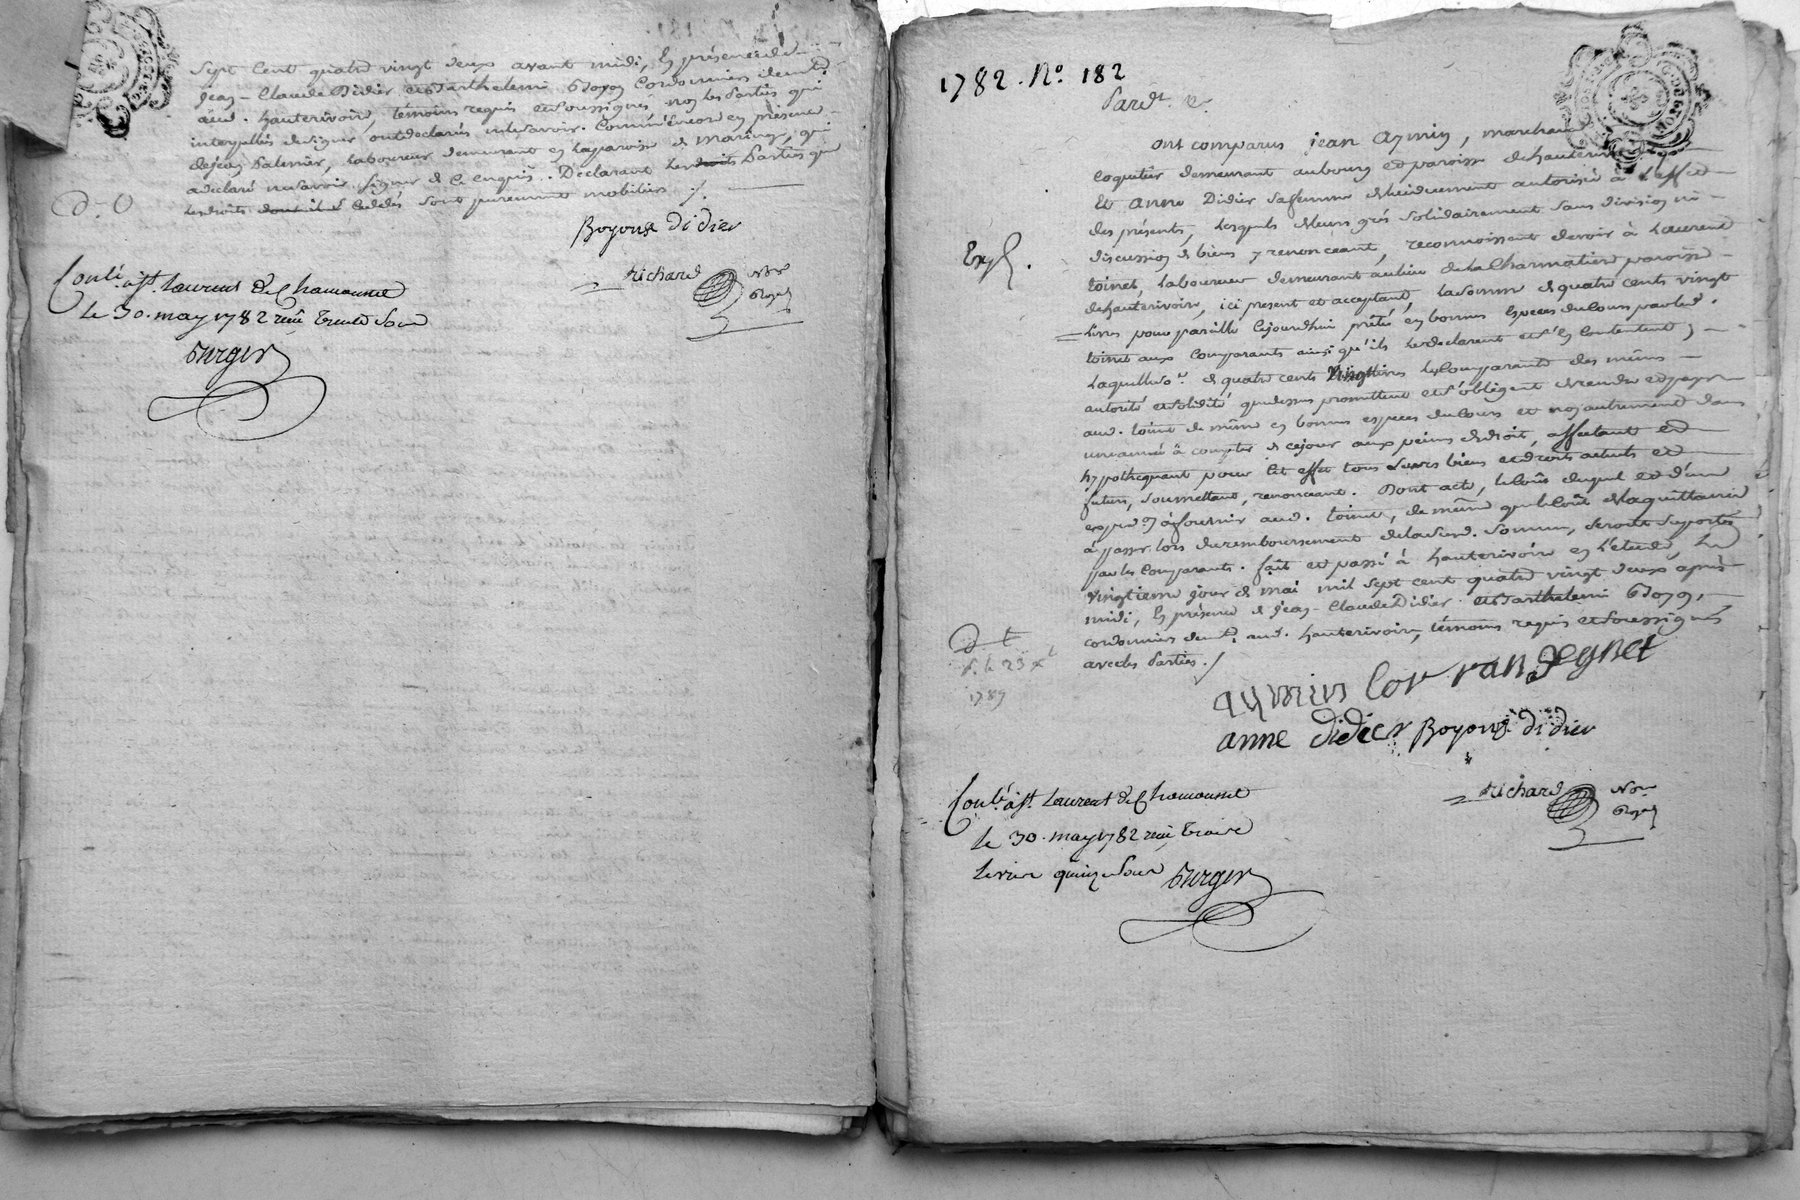 Sept Cent quatre vingt deux avant midi, En présence de
Jean-Claude Didier et Barthelemi Boyon Cordonniers demt.
aud. hauterivoire, témoins requis et soussignés non les Parties qui
interpellées de signer ont declarés ne le savoir. Comme Encore en présence
de jean Palmier, laboureur demeurant en la paroisse de maringe, qui
a déclaré ne savoir signer de ce enquis. Declarant les Parties que
les droits cedés sont purement mobiliers ./.
D. O
Boyons didier
richard Nre
Royal
Conlé. à St. Laurent de Chamousset
le 30. may 1782 reçu trente sous
Burger
1782. No. 182
Pardt. &
ont comparus jean aymin, marchand
coquetier demeurant au bourg et paroisse de hauterivoire
Et anne Didier sa femme de lui duement autorisée à l'effet
des présents, lesquels de leurs grés solidairement sans division ni
discussion de biens y renonceant, reconnoissent devoir à Laurent
toinet, laboureur demeurant au lieu de la Charmatier paroisse
de hauterivoire, ici présent et acceptant, la somme de quatre cents vingt
livres pour pareille cejourdhui prêtée en bonnes Especes du Cours par led.
toinet aux Comparants ainsi qu'ils le declarent et s'en Contentent,
Laquelle so.e de quatre cents vingt livres les Comparants des mêmes
autorité et solidité que dessus promettent et s'obligent de rendre et payer
aud. toinet de même en bonnes especes du Cours et non autrement dans
une année à compter de cejour aux peines de droit, affectant et
hypothequant pour cet effet tous leurs biens et droits actuels et
futurs, soumettant, renonceant. Dont acte, le coût duquel et d'une
expedon. à fournir aud. toinet, de même que le coût de la quittance
à passer lors du remboursement de la susd. somme, seront suportés
par les Comparants. fait et passé à hauterivoire en l'étude, Le
vingtieme jour de mai mil sept cent quatre vingt deux après
midi, En présence de Jean-Claude Didier et Barthelemi Boyon,
cordonniers demt. aud. hauterivoire, témoins requis et soussignés
avec les Parties ./.
Exp.
1789
aymin
anne didier Boyons didier
richard Nre
Royal
Conlé. à St. Laurent de Chamousset
le 30. may 1782 reçu troise
Livres quinze sous Burger